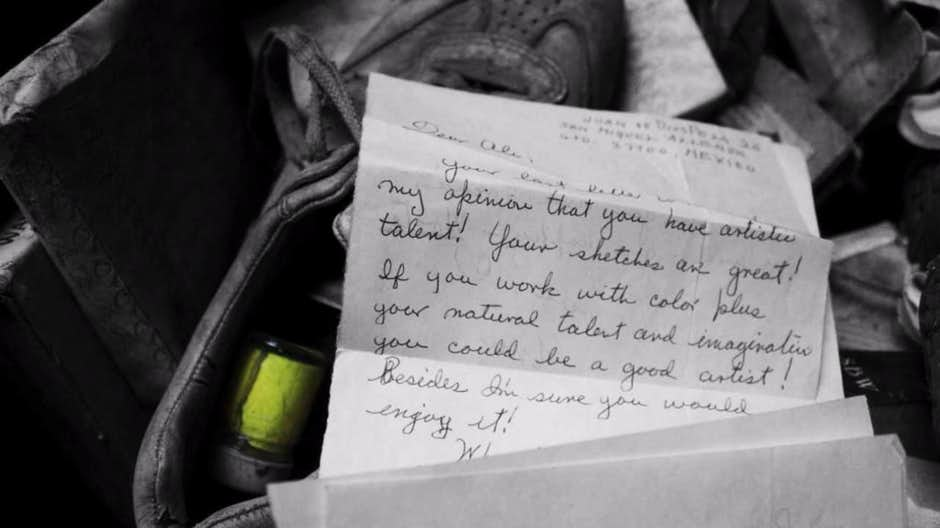 JUAN de
SAN MIGUEL ALLENDE
GTO. 37700, MEXICO
Dear Ali,
your
my opinion that you have artistic
talent! Your sketches are great!
If you work with color plus
your natural talent and imagination
you could be a good artist!
Besides I'm sure you would
enjoy it!